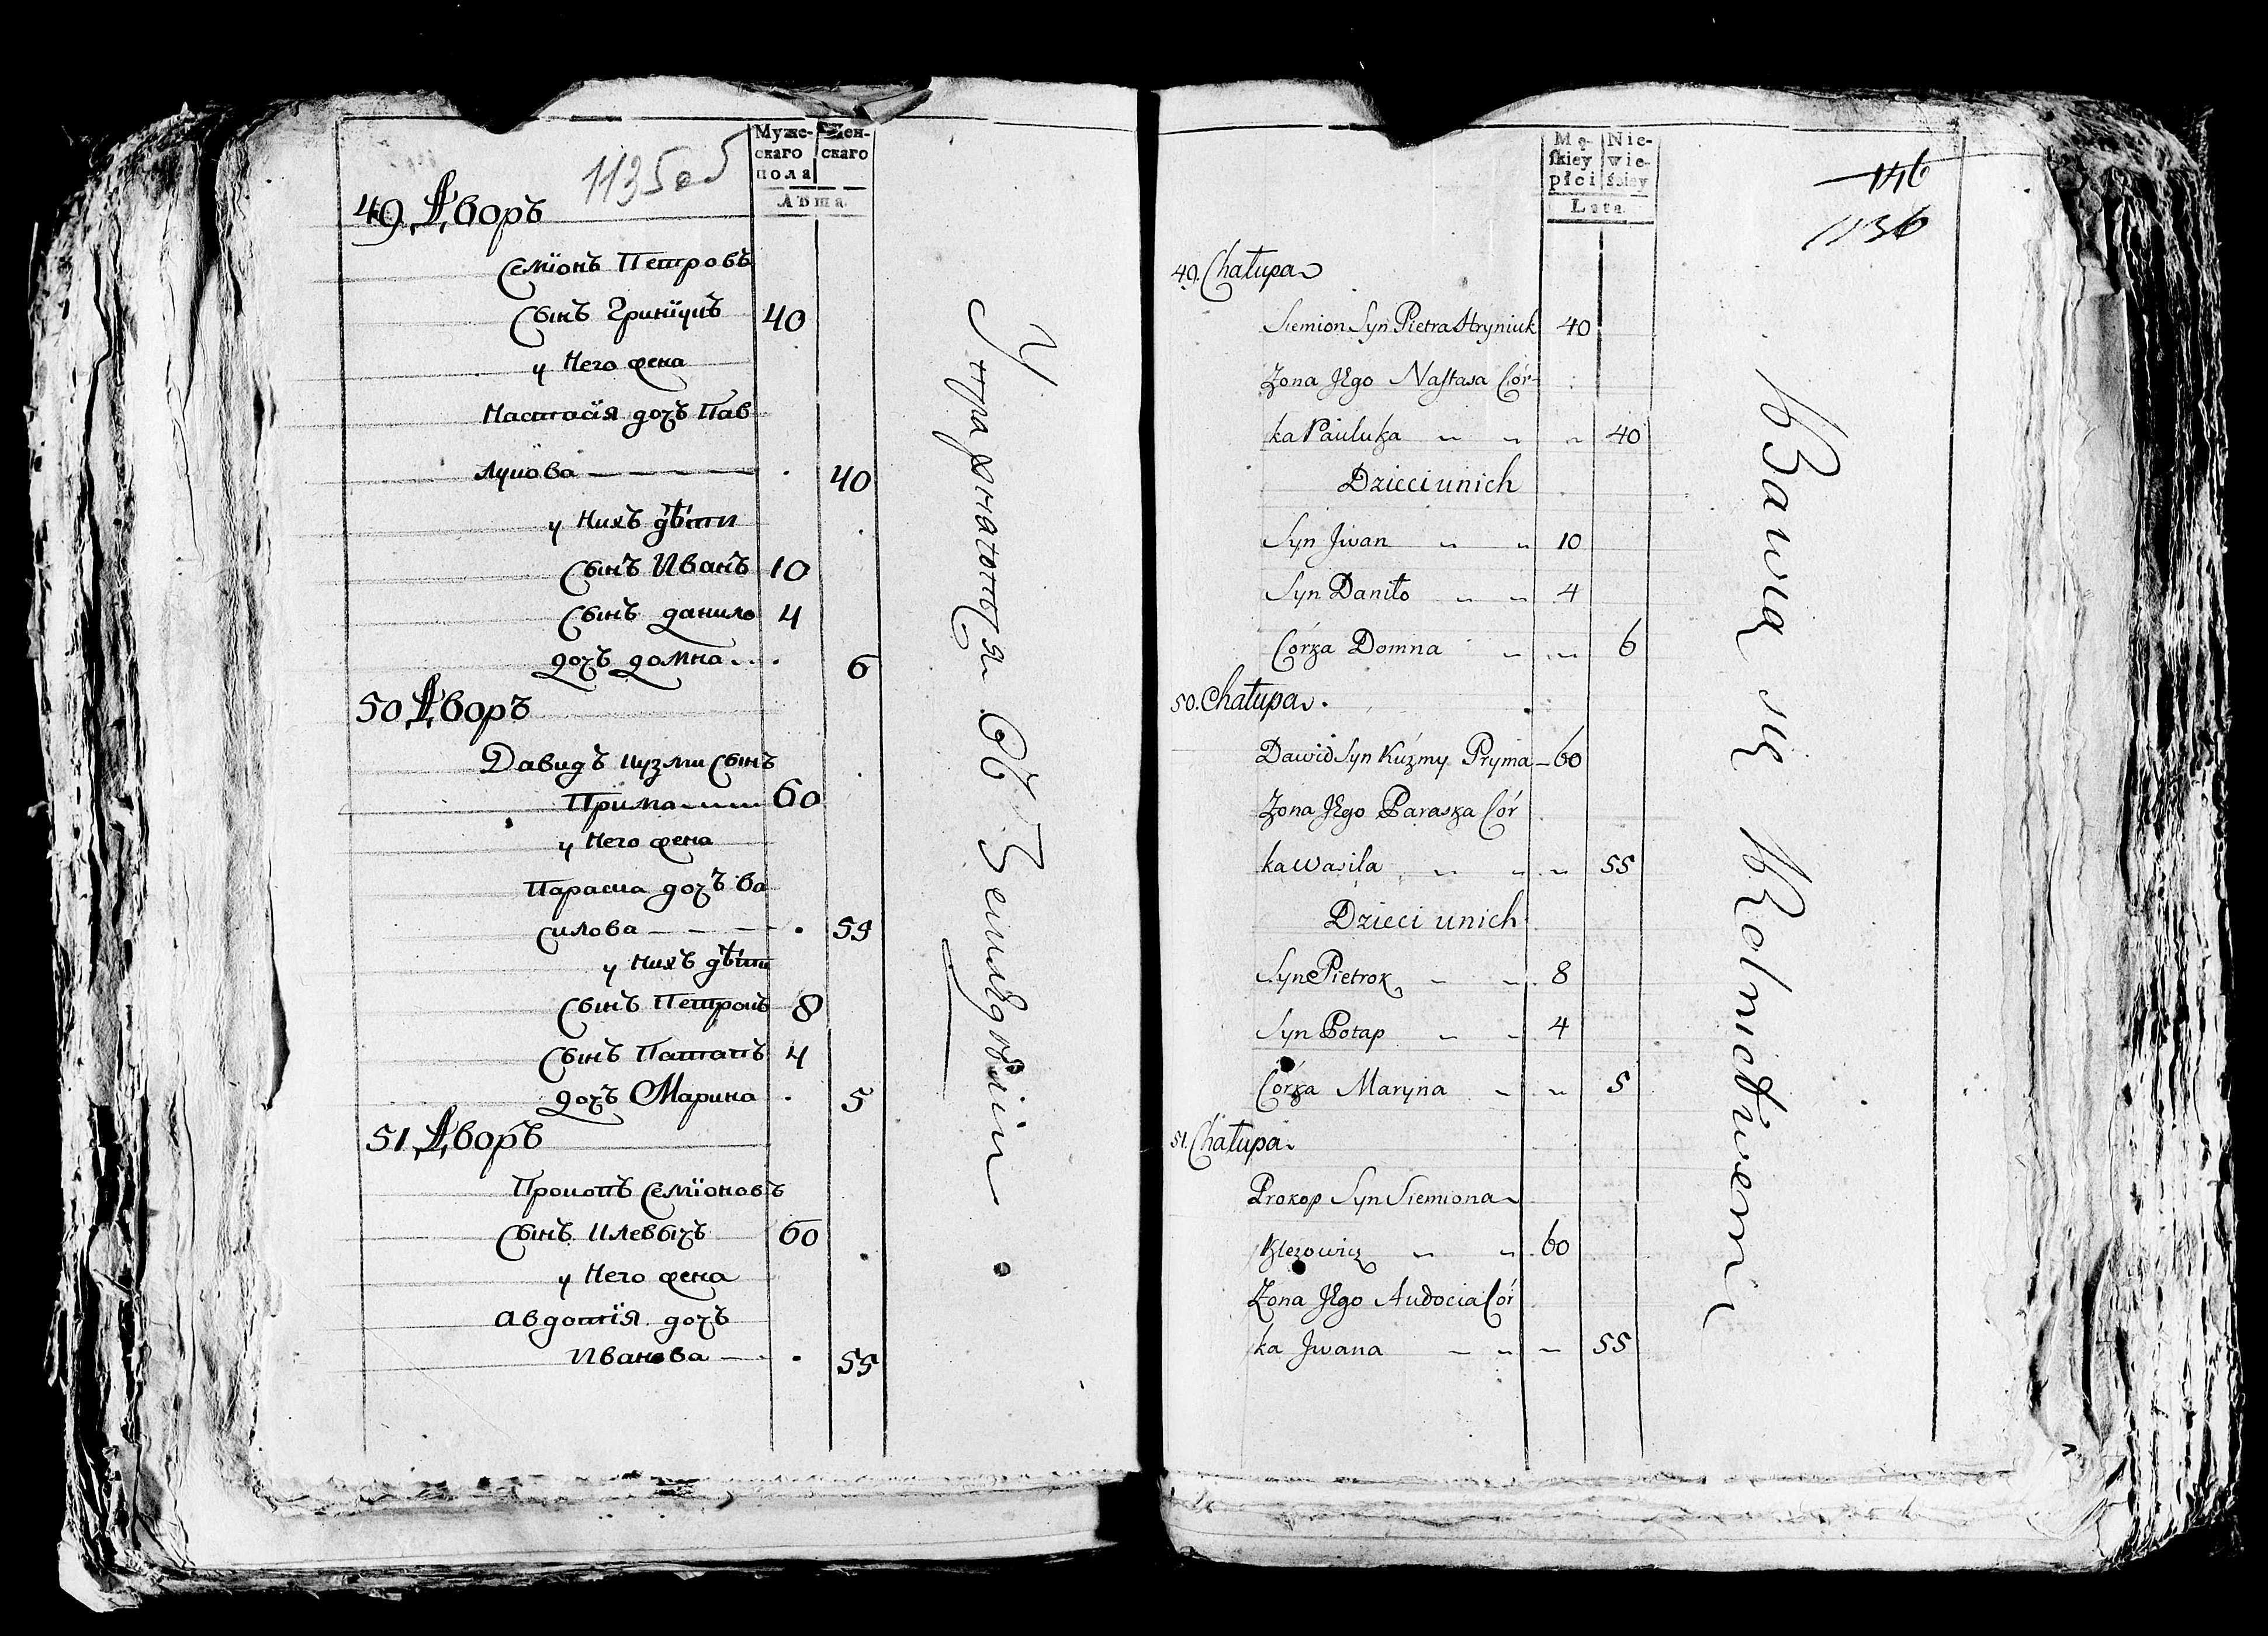 1135 об
Муже-
скаго
пола
Жен-
скаго
Лѣта.
49. Дворъ
Семіонъ Петровъ
Сынъ Гриніукъ 40
у Него жена
Настасія дочъ Пав
лукова — — — — . 40
у Нихъ дѣти
Сынъ Иванъ 10
Сынъ данило 4
дочъ домна . . . 6
50 Дворъ
Давидъ кузми Сынъ
Прима 60
у Него жена
Параска дочъ ва
силова — — — . 55
у Нихъ дѣти
Сынъ Петрокъ 8
Сынъ Патапъ 4
дочъ Марина . 5
51 Дворъ
Прокопъ Семіоновъ
Сынъ Клевычъ 60
у Него жена
Авдотія дочъ
Иванова — . 55
Въ Земледѣліи.
Mę-
skiey
płci
Nie-
wie-
ściey
Lata
146
1136
49. Chałupa
Siemion Syn Pietra Hryniuk 40
Zona JEgo Nastasa Cór-
ka Pauluka 40
Dzieci unich
Syn Jwan 10
Syn Daniło 4
Córka Domna 6
50. Chałupa.
Dawid Syn Kuźmy Pryma – 60
Zona JEgo Paraska Cór
ka Wasila 55
Dzieci unich
Syn Pietrok 8
Syn Potap 4
Córka Maryna 5
51. Chałupa
Prokop Syn Siemiona
60
Zona JEgo Audocia Cór
ka Jwana 55
Bawią się Rolnictwem